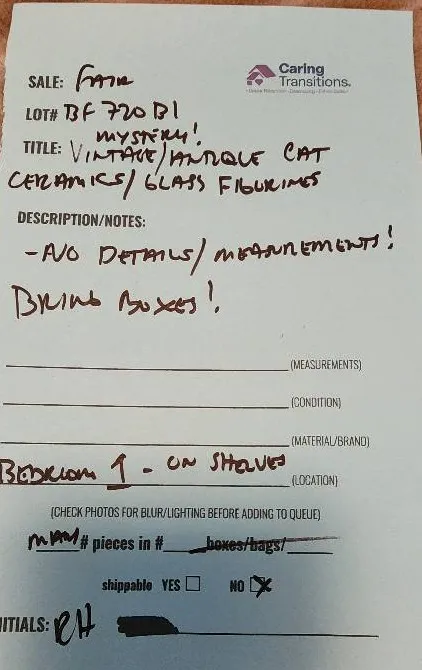 Caring
Transitions®
SALE: FAIR
LOT# BF 720 B1
MYSTERY!
TITLE: VINTAGE/ANTIQUE CAT
CERAMICS/ GLASS FIGURINES
DESCRIPTION/NOTES:
-NO DETAILS/ MEASUREMENTS!
BRING BOXES!
(MEASUREMENTS)
(CONDITION)
(MATERIAL/BRAND)
BEDROOM 1 - ON SHELVES (LOCATION)
(CHECK PHOTOS FOR BLUR/LIGHTING BEFORE ADDING TO QUEUE)
MANY # pieces in # boxes/bags/
shippable YES NO
NITIALS: RH